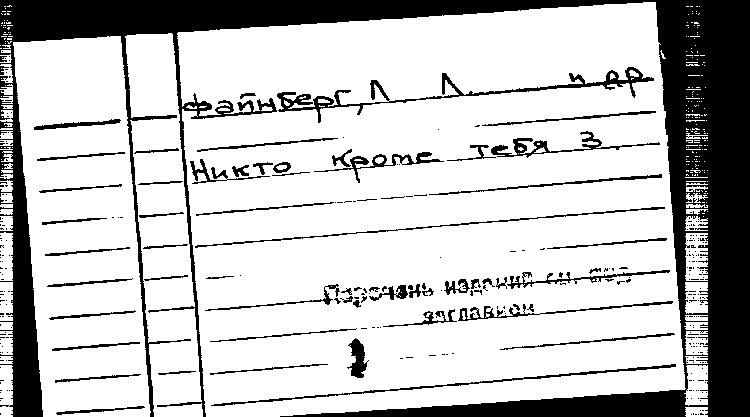 Файнберг, Л. Л. и др
Никто кроме тебя 3.
Перечень изданий см. под
заглавием